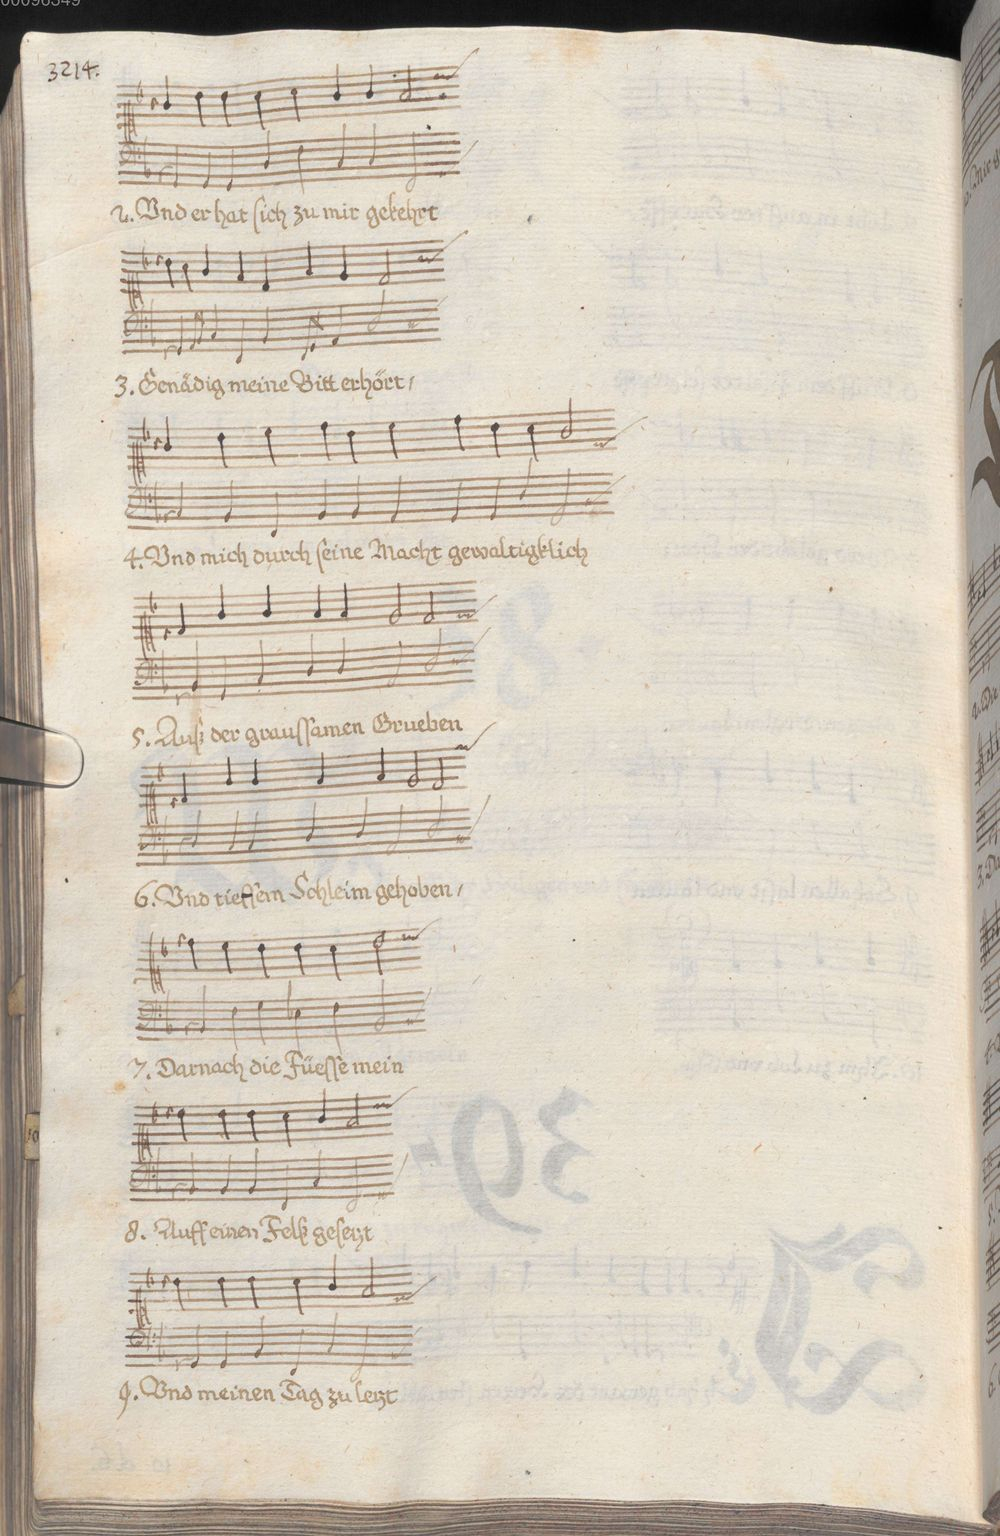 00098349
3214.
2. Vnd er hat sich zu mir gekehrt
3. Genädig meine Bitt erhört,
4. Vnd mich durch seine Macht gewaltigklich
5. Auß der graussamen Grueben
6. Vnd tieffem Schleim gehoben,
7. Darnach die Füesse mein
8. Auff einen Felß gesetzt
9. Vnd meinen Tag zu letzt